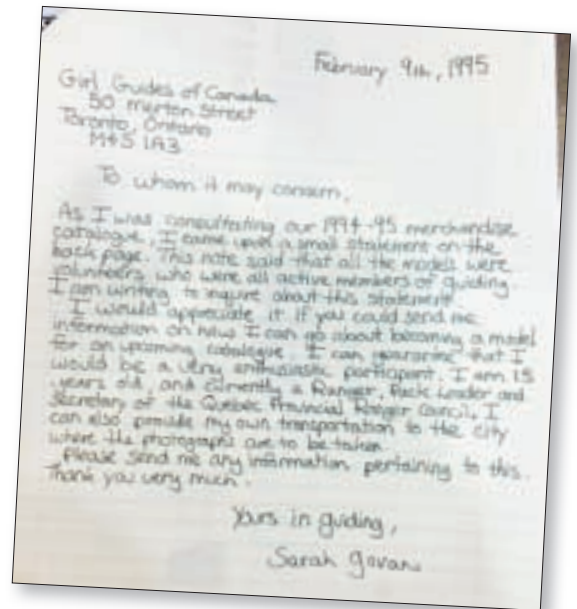 February 9th, 1995
Girl Guides of Canada
50 Merton Street
Toronto, Ontario
M4S 1A3
To whom it may concern,
As I was our 1994-95 merchandise
catalogue, I came upon a small statement on the
back page. This note said that all the models were
volunteers who were all active members of guiding.
I am writing to inquire about this statement.
I would appreciate it if you could send me
information on how I can go about becoming a model
for an upcoming catalogue. I can guarantee that I
would be a very enthusiastic participant. I am 15
years old, and currently a Ranger, Pack Leader and
Secretary of the Quebec Provincial Ranger Council. I
can also provide my own transportation to the city
where the photographs are to be taken.
Please send me any information pertaining to this.
Thank you very much.
Yours in guiding,
Sarah